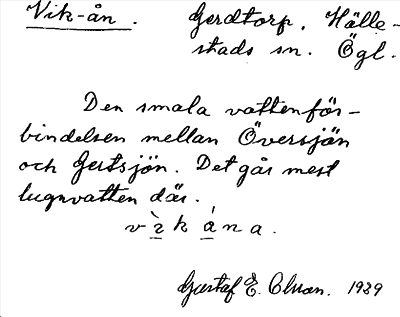 Vik-ån. Gerdtorp. Hälle-
stads sn. Ögl.
Den smala vattenför-
bindelsen mellan Översjön
och Gertsjön. Det går mest
lugnvatten där.
v i k á n a.
Gustaf E. 1929